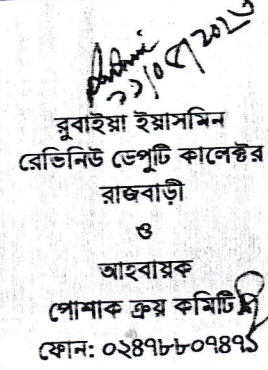 রুবাইয়া ইয়াসমিন
রেভিনিউ ডেপুটি কালেক্টর
রাজবাড়ী
ও
আহবায়ক
পোশাক ক্রয় কমিটি
ফোন: ০২৪৭৮৮০৭৪৭১